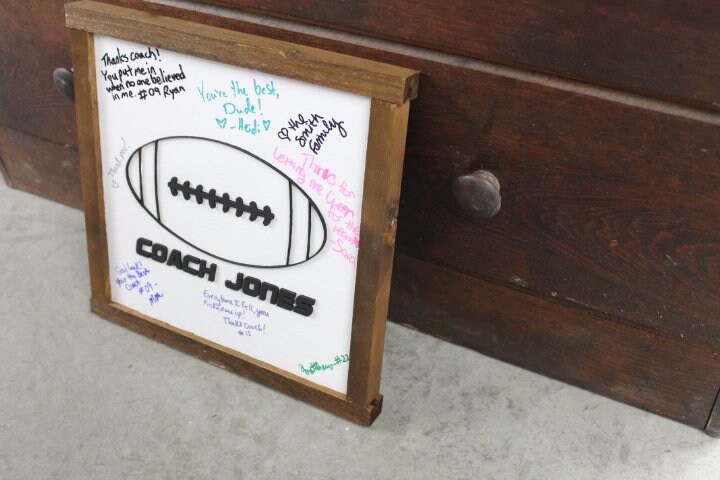 Thanks coach!
You put me in
when no one believed
in me. #09 Ryan
You're the best,
Dude!
♡-Heidi♡
♡ the
Smith
Family
Thanks for
letting me cheer
for the
team
Thank you!
COACH JONES
Good luck!
You're the best
Coach
#09-
Everytime I fell, you
Pick me up!
Thanks Coach!
#15
#22